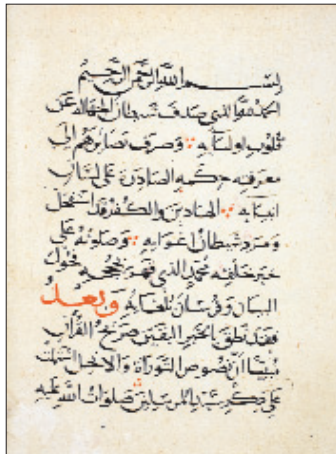 بسم الله الرحمن الرحيم
الحمد لله الذي صدف شيطان الجهالة عن
قلوب اوليايه وصرف بصايرهم الى
معرفته حكمه الصادرة على لسان
انبيايه الهادين والكفر قد استحل
ومرد شيطان اغوايه وصلوته على
خير خلقه محمد الذي قهر بحججه فحول
البيان وفرسان بلغايه وبعد
فقد نطق الخبر اليقين صريح القران
مبينا ان نصوص التوراة والانجيل
على ذكر سيد المرسلين صلوات الله عليه